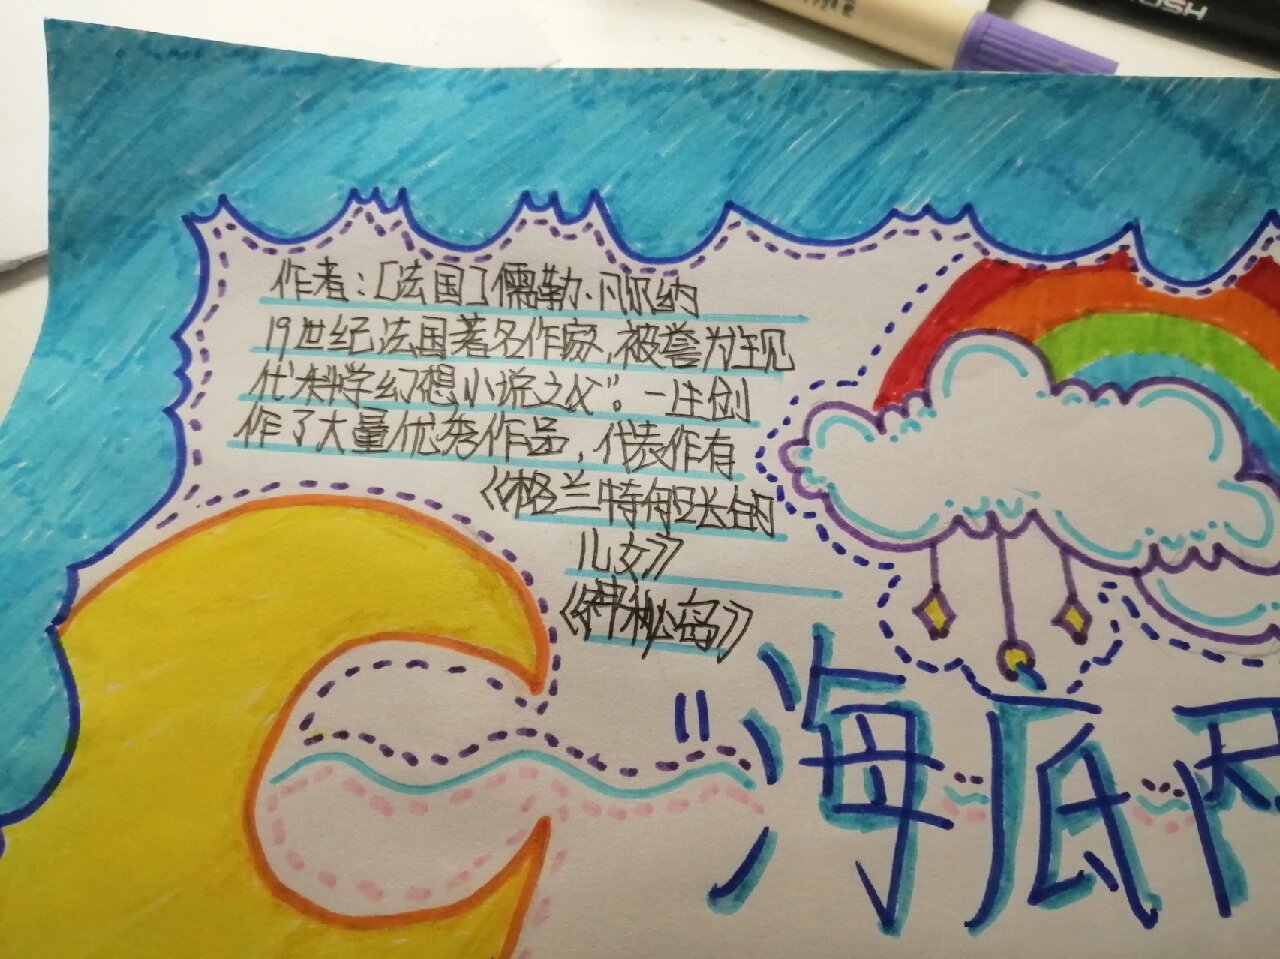 作者：[法国]儒勒·凡尔纳
19世纪法国著名作家，被誉为"现
代科学幻想小说之父"。一生创
作了大量优秀作品，代表作有
《格兰特船长的
儿女》
《神秘岛》
"海底